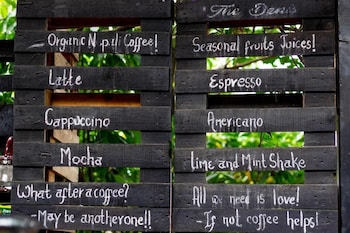 Organic N pali Coffee!
Latte
Cappuccino
Mocha
What after a coffee?
- May be another one!!
The
Seasonal fruits Juices!
Espresso
Americano
lime and Mint Shake
All we need is love!
- If not coffee helps!